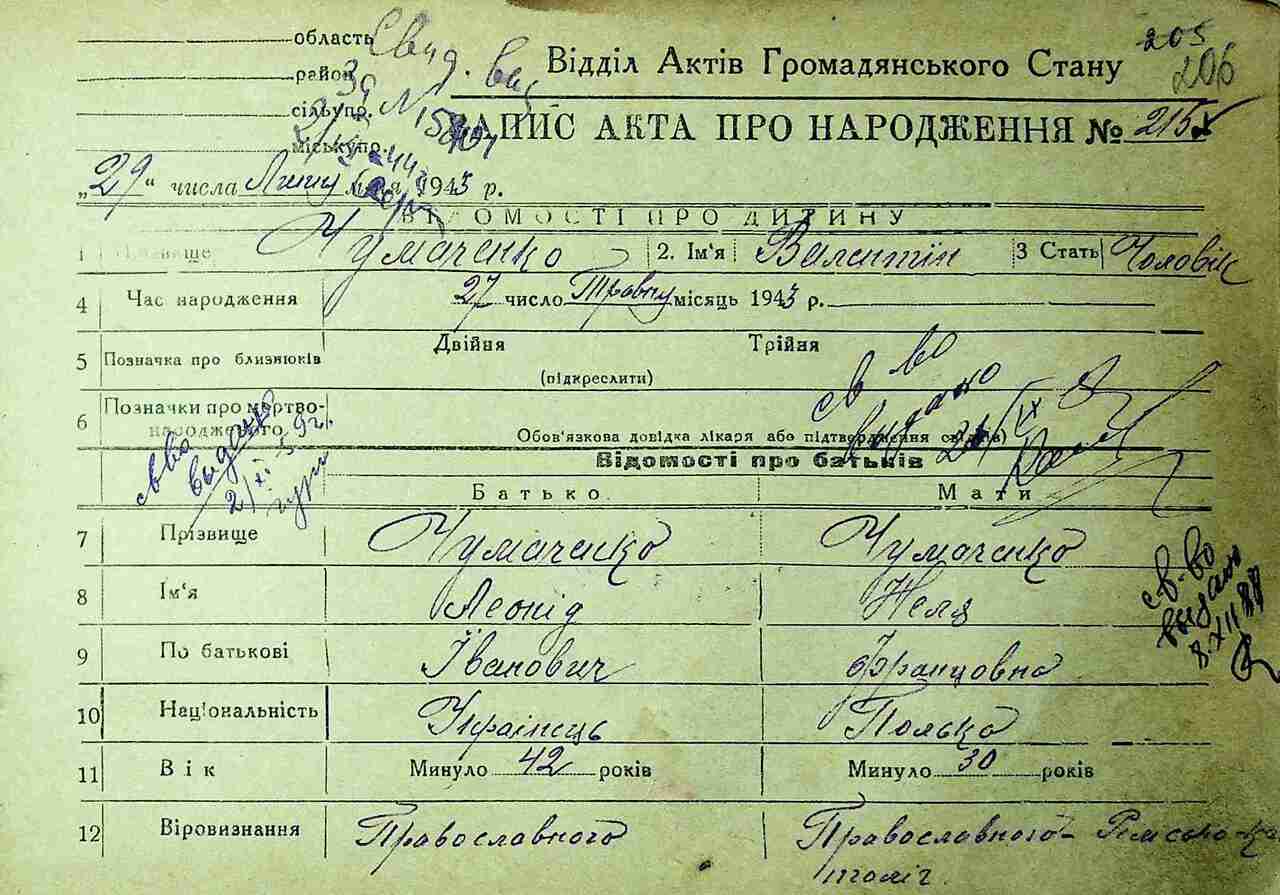 область
район
сільупр.
міськупр.
Свид. вид
205
206
Відділ Актів Громадянського Стану
ЗАПИС АКТА ПРО НАРОДЖЕННЯ № 215
„29“ числа Липня 1943 р.
ВІДОМОСТІ ПРО ДИТИНУ
1 Прізвище Чумаченко 2. Ім'я Валентін 3 Стать Чоловік
4 Час народження 27 число Травня місяць 1943 р.
5 Позначка про близнюків Двійня Трійня
(підкреслити)
6 Позначки про мертво-
народженого
Обов'язкова довідка лікаря або підтвердження свідків)
св во
видано
с-во
выдано
Відомості про батьків
Батько Мати
7 Прізвище Чумаченко Чумаченко
8 Ім'я Леонід Неля
9 По батькові Іванович Францовна
св-во
выдано
8.XII 88
10 Національність Українець Полька
11 Вік Минуло 42 років Минуло 30 років
12 Віровизнання Православного Православного - Римсько-ка
толіч